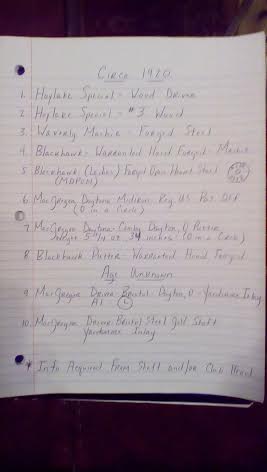 Circa 1920
1. Hoylake Special - Wood Driver
2. Hoylake Special - #3 Wood
3. Waverly Mashie - Forged Steel
4. Blackhawk - Warranted Hand Forged - Mashie
5. Blackhawk (Ladies) Forged Steel
6. MacGregor Daytona - Midiron, Reg. US Pat. Off
(O in a Circle)
7. MacGregor Daytona Dayton, O Putter
34 inches (O in a Circle)
8. Blackhawk Putter - Warranted Hand Forged
Age Unknown
9. MacGregor Driver Bristol - Dayton, O - Yardsmore Inlay
10. MacGregor Driver - Bristol Steel Golf Shaft
Yardsmore Inlay
* Info Acquired From Shaft and/or Club Head